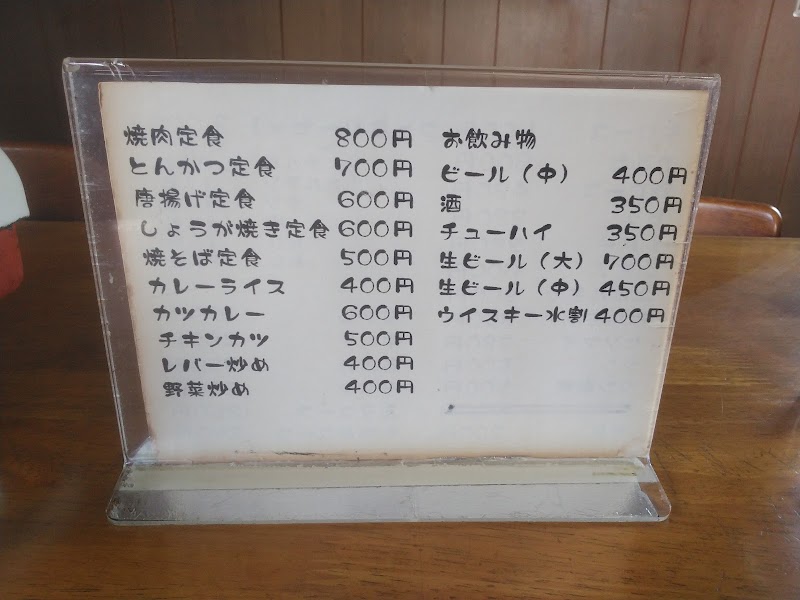 焼肉定食 800円
とんかつ定食 700円
唐揚げ定食 600円
しょうが焼き定食 600円
焼そば定食 500円
カレーライス 400円
カツカレー 600円
チキンカツ 500円
レバー炒め 400円
野菜炒め 400円
お飲み物
ビール（中） 400円
酒 350円
チューハイ 350円
生ビール（大） 700円
生ビール（中） 450円
ウイスキー水割 400円